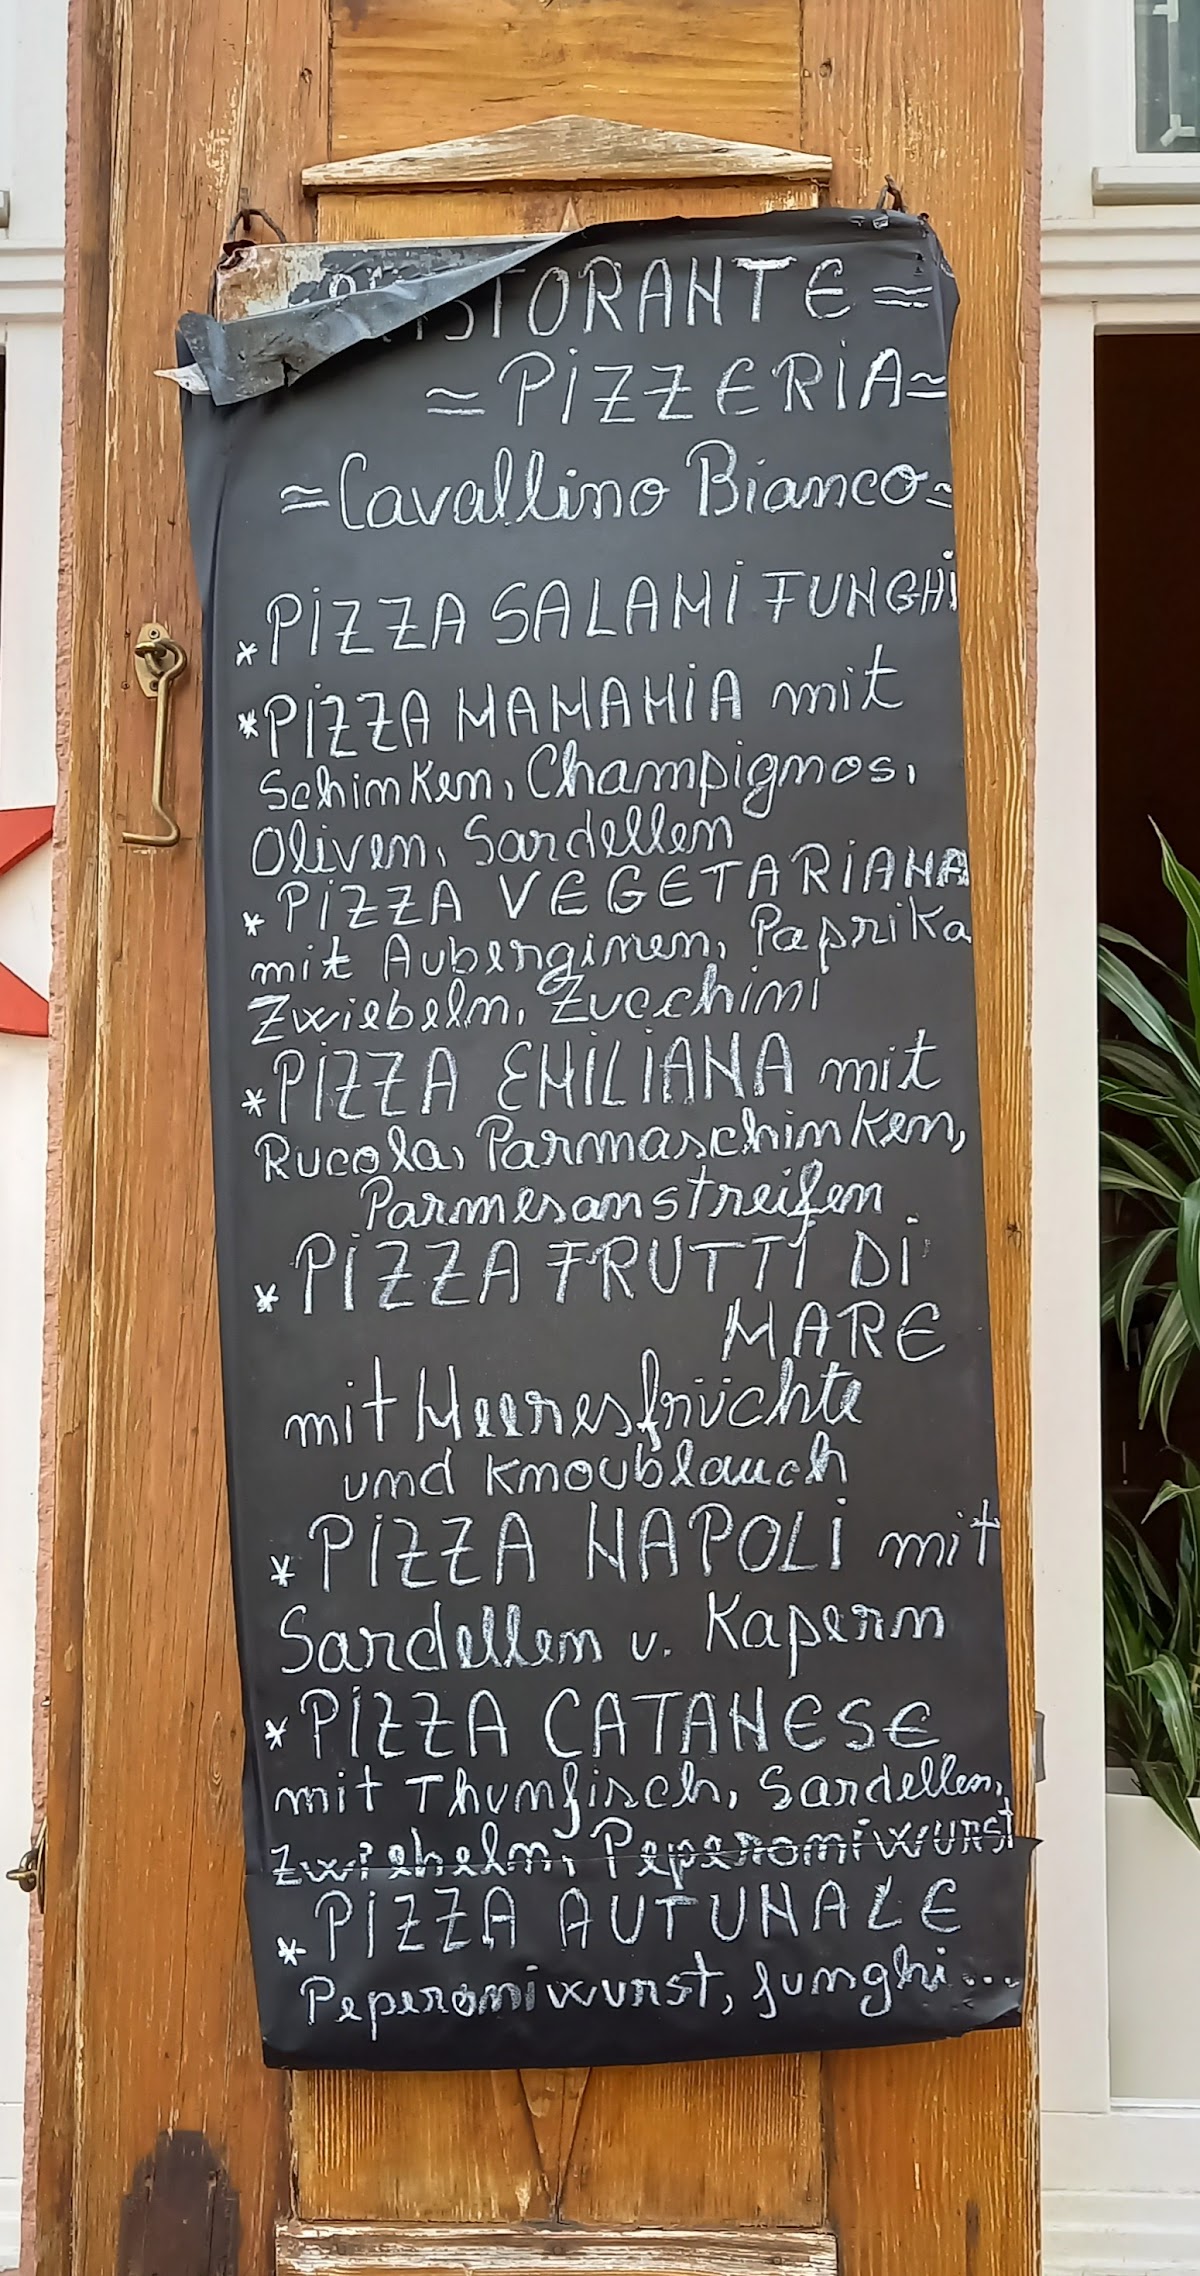 RISTORANTE =
= PiZZERiA =
= Cavallino Bianco =
* PiZZA SALAMi FUNGHi
* PiZZA MAMAMiA mit
Schinken, Champignos,
Oliven, Sardellen
* PiZZA VEGETARiANA
mit Auberginen, Paprika
Zwiebeln, Zucchini
* PiZZA EMiLiANA mit
Rucola, Parmaschinken,
Parmesanstreifen
* PiZZA FRUTTi Di
MARE
mit Meeresfrüchte
und Knoublauch
* PiZZA NAPOLi mit
Sardellen u. Kapern
* PiZZA CATANESE
mit Thunfisch, Sardellen,
Zwiebeln, Peperoniwurst
* PiZZA AUTUNALE
Peperoniwurst, funghi...